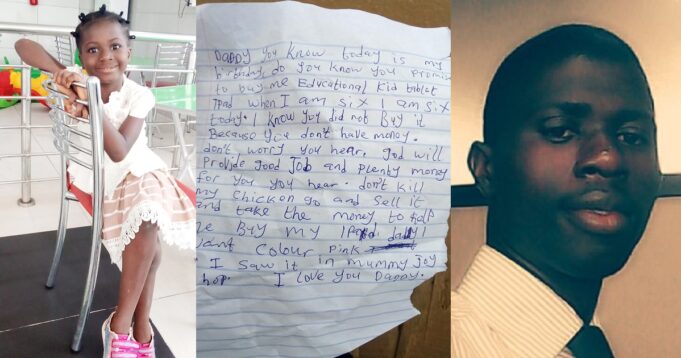 Daddy you know today is my
birthday, do you know you promise
to buy me Educational kid tablet
IPad when I am six I am six
today. I know you did not Buy it
Because you don't have money.
don't worry you hear. God will
Provide good Job and plenty money
for you you hear. don't kill
my chicken go and sell it
and take the money to
me Buy my daddy I
want Colour pink
I saw it in mummy Joy
shop. I love you Daddy.